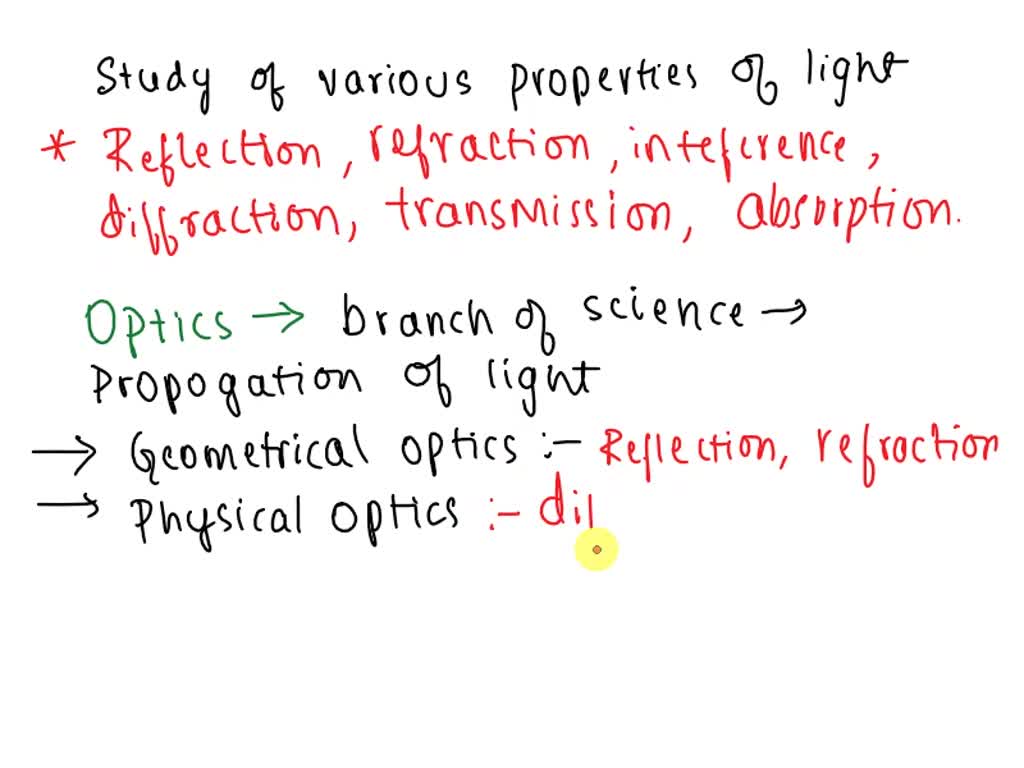 Study of various properties of light
* Reflection, refraction, inteference,
diffraction, transmission, absorption.
Optics → branch of science →
Propogation of light
→ Geometrical optics :- Reflection, refraction
→ Physical optics :- dif